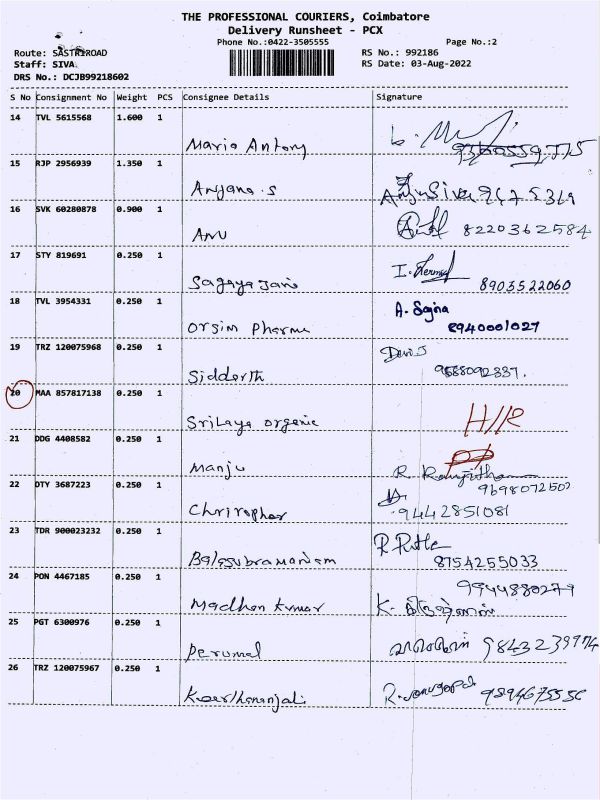 THE PROFESSIONAL COURIERS, Coimbatore
Delivery Runsheet - PCX
Phone No.:0422-3505555 Page No.:2
Route: SASTRIROAD RS No.: 992186
Staff: SIVA RS Date: 03-Aug-2022
DRS No.: DCJB99218602
S No Consignment No Weight PCS Consignee Details Signature
14 TVL 5615568 1.600 1
Maria Antony
15 RJP 2956939 1.350 1
Anjana.s
16 SVK 60280878 0.900 1
ANU 8220362584
17 STY 819691 0.250 1
Sagaya Jani 8903522060
18 TVL 3954331 0.250 1 A. Sajna
Orsim Pharma 8940001027
19 TRZ 120075968 0.250 1
Siddarth 9688092337.
20 MAA 857817138 0.250 1
Srilaya organic
21 DDG 4408582 0.250 1
Manju
22 DTY 3687223 0.250 1 9698072502
Chrirophar 9442851081
23 TDR 900023232 0.250 1
Balasubramaniam 8754255033
24 PON 4467185 0.250 1 9944880279
Madhan kumar
25 PGT 6300976 0.250 1
Perumal 9843239774
26 TRZ 120075967 0.250 1
Keerthananjali